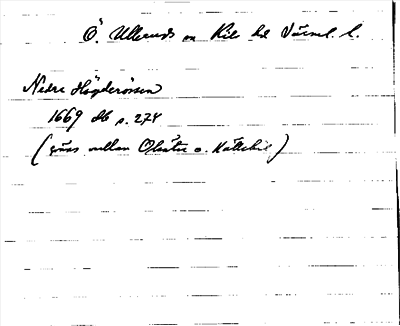 Ö. Ullerud sn Kils hd Värml. l.
Nedre Högderönsen
1669 db s. 274
(gräns mellan Olsäter o. Kättebol)